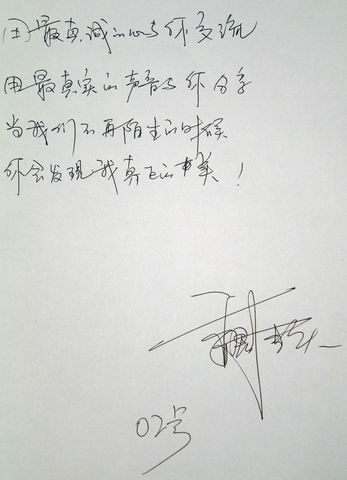 用最真诚的心与你交流
用最真实的声音与你分享
当我们不再陌生的时候
你会发现我真正的美！
02号